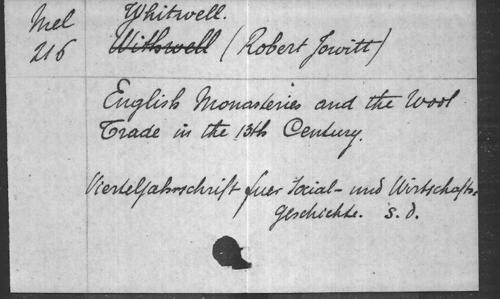 Mel
216
Whitwell.
Withwell (Robert Jowitt)
English Monasteries and the Wool
Trade in the 13th Century.
Vierteljahrschrift fuer Social- und Wirtschafts-
geschichte. s.d.